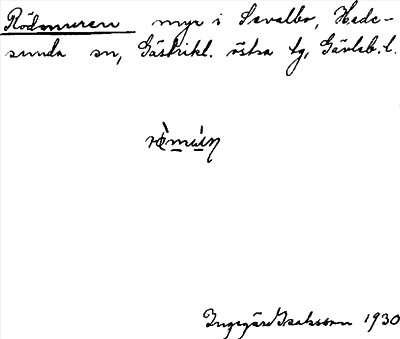 Rödmuren myr i Sevalbo, Hede-
sunda sn, Gästrikl. östra tg, Gävleb. l.
Ingegärd Isaksson 1930